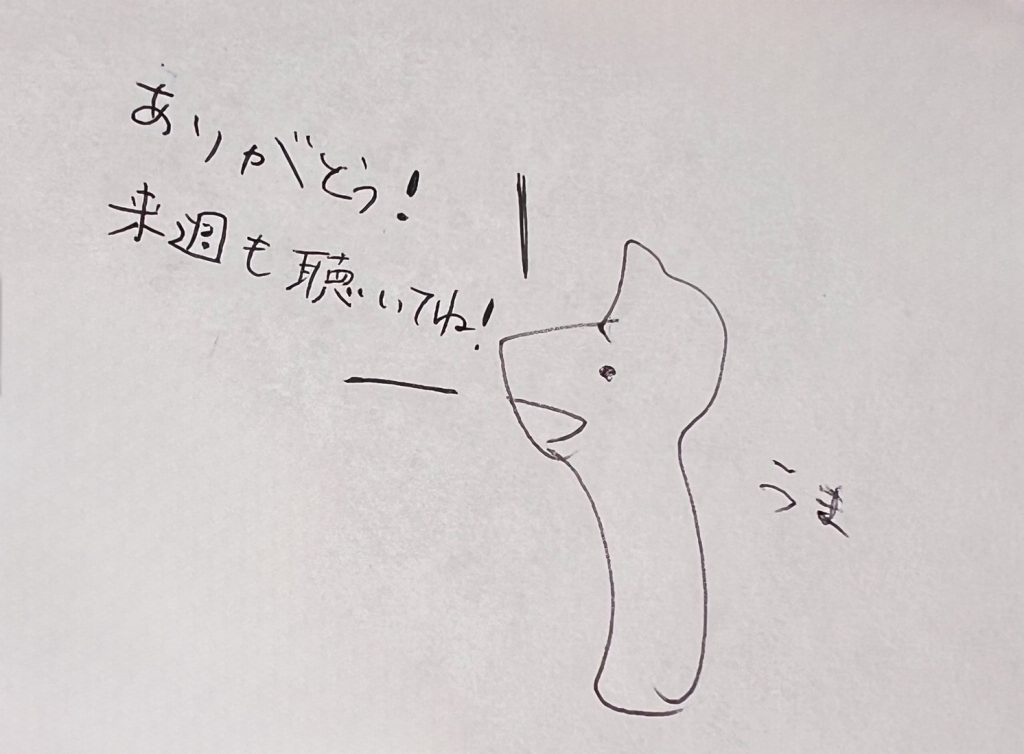 ありがとう!
来週も聴いてね!
うま